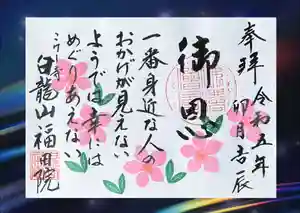 奉拝 令和五年
卯月吉辰
御恩
一番身近な人の
おかげが見えない
ようでは幸には
めぐりあえない
白龍山福田院